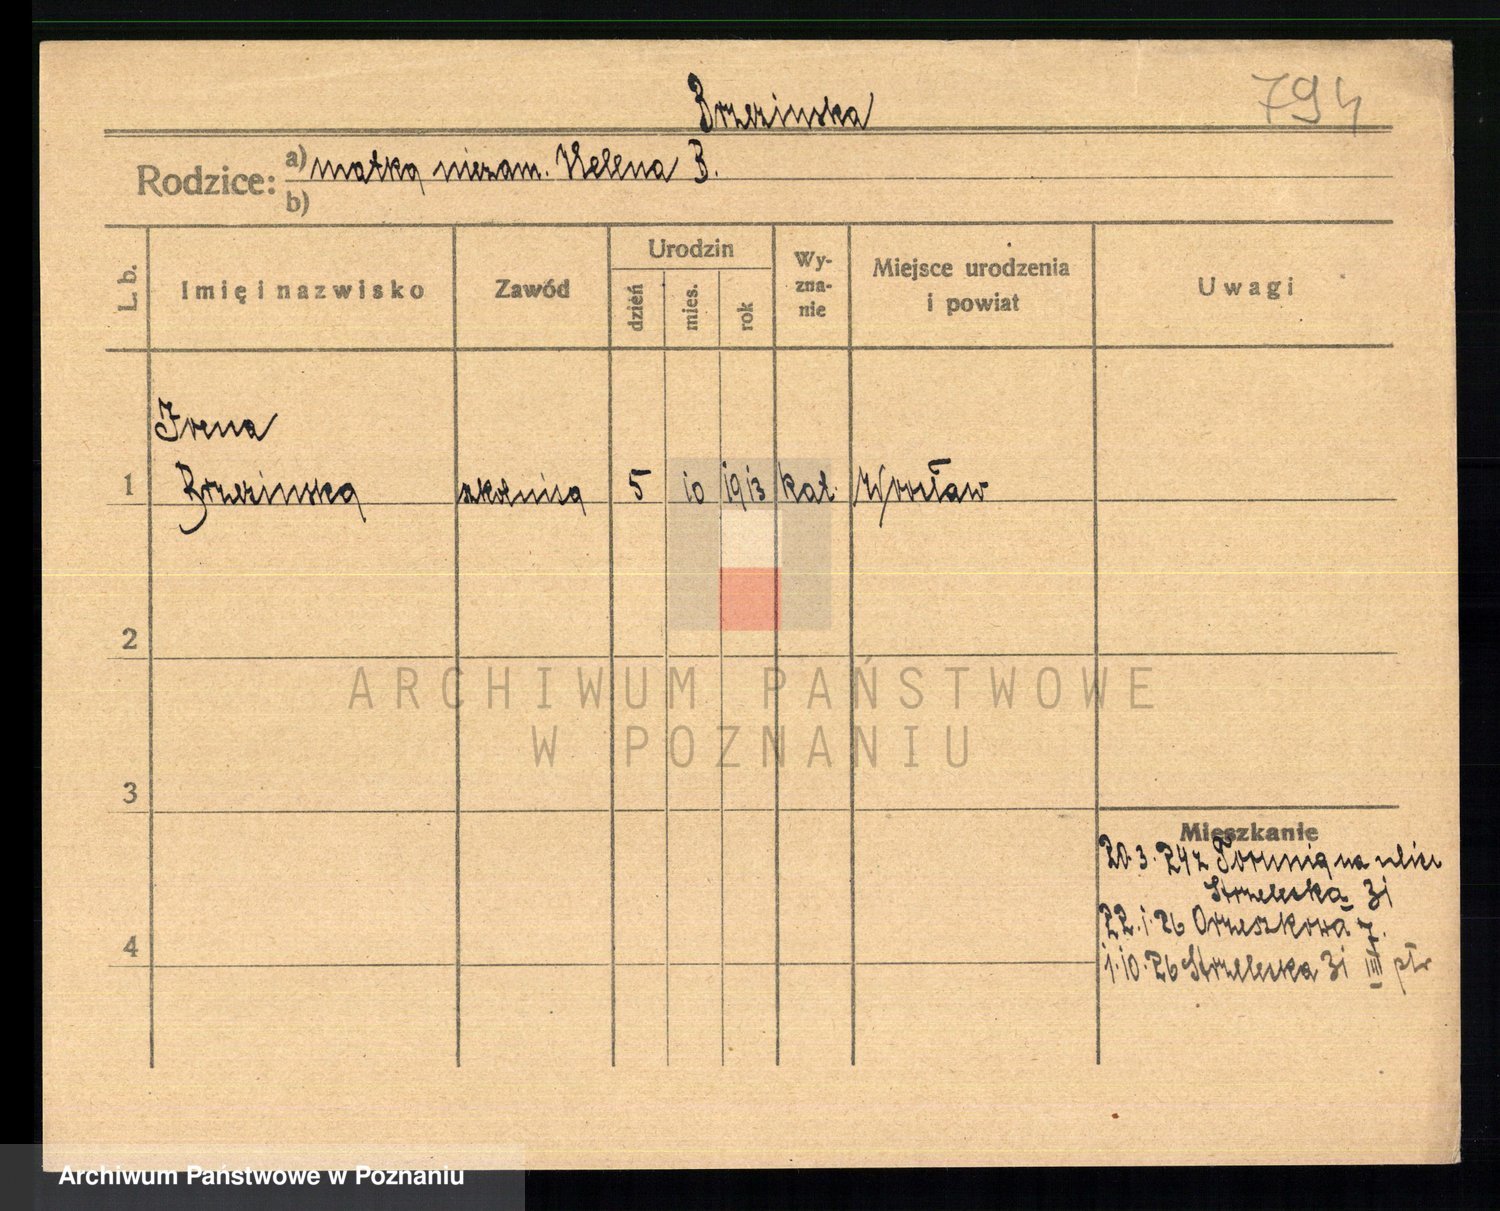 794
Brzezinska
Rodzice: a) matka niezam. Helena B.
b)
L. b.
Imię i nazwisko
Zawód
Urodzin
dzień
mies.
rok
Wy-
zna-
nie
Miejsce urodzenia
i powiat
Uwagi
Irena
1 Brzezinska szkolnica 5 10 1913 kat. Wrocław
2
ARCHIWUM PAŃSTWOWE
W POZNANIU
3
Mieszkanie
20.3.24 z Torunia na ulice
Strzelecka 31
22.1.26 Orzeszkowa 7.
4
1.10.26 Strzelecka 31 III ptr
Archiwum Państwowe w Poznaniu